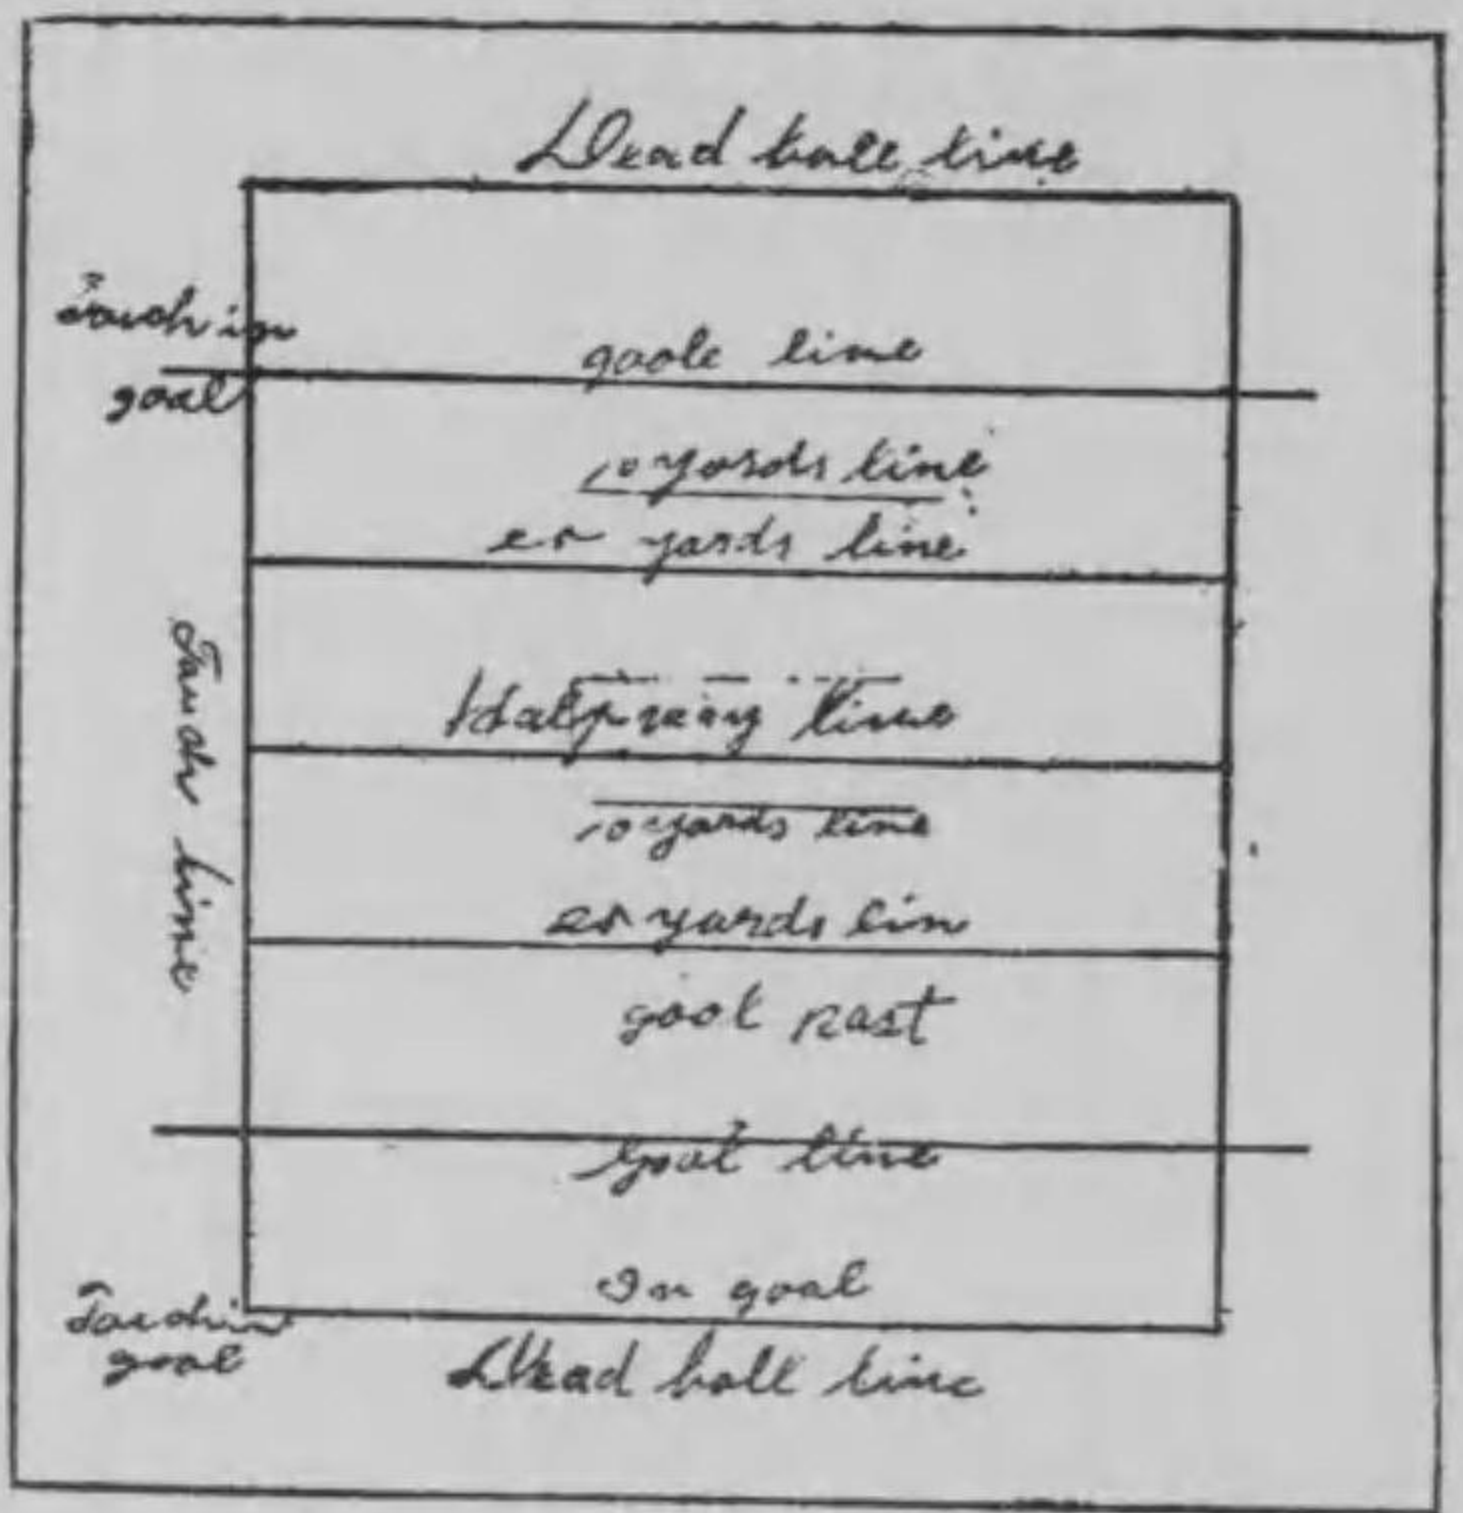 Dead ball line
Touch in
goal
goale line
10 yards line
25 yards line
Halfway line
Touch line
10 yards line
25 yards lin
gool post
goal line
In goal
Touch in
goal
Dead ball line